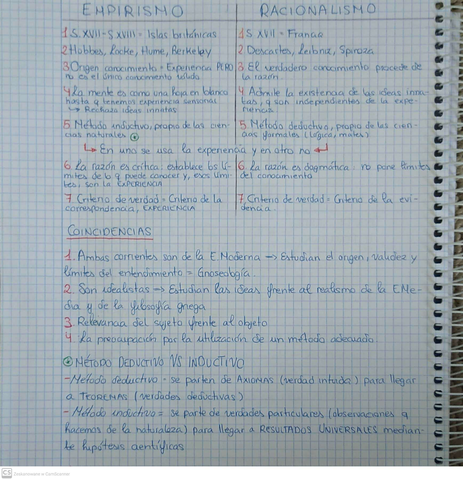 EMPIRISMO
RACIONALISMO
1 S. XVII - S. XVIII = Islas británicas
2 Hobbes, Locke, Hume, Berkeley
3 Origen conocimiento = Experiencia PERO
no es el único conocimiento válido
4 La mente es como una hoja en blanco
hasta q tenemos experiencia sensorial
→ Rechaza ideas innatas
5 Método inductivo, propio de las cien-
cias naturales
1 S. XVII = Francia
2 Descartes, Leibniz, Spinoza
3 El verdadero conocimiento procede de
la razón
4 Admite la existencia de las ideas inna-
tas, q son independientes de la expe-
riencia
5 Método deductivo, propio de las cien-
cias formales (Lógica, mates)
→ En uno se usa la experiencia y en otro no ←
6 La razón es crítica: establece los lí-
mites de lo q puede conocer y, esos lími-
tes, son la EXPERIENCIA
7 Criterio de verdad = Criterio de la
correspondencia, EXPERIENCIA
6 La razón es dogmática: no pone límites
del conocimiento
7 Criterio de verdad = Criterio de la evi-
dencia
COINCIDENCIAS
1. Ambas corrientes son de la E Moderna → Estudian el origen, validez y
límites del entendimiento = Gnoseología.
2. Son idealistas → Estudian las ideas frente al realismo de la EMe-
dia y de la filosofía griega
3. Relevancia del sujeto frente al objeto
4. La preocupación por la utilización de un método adecuado
MÉTODO DEDUCTIVO VS INDUCTIVO
- Método deductivo - se parten de AXIOMAS (verdad intuida) para llegar
a TEOREMAS (verdades deductivas)
- Método inductivo = se parte de verdades particulares (observaciones q
hacemos de la naturaleza) para llegar a RESULTADOS UNIVERSALES median-
te hipótesis científicas
CS Escaneado con CamScanner